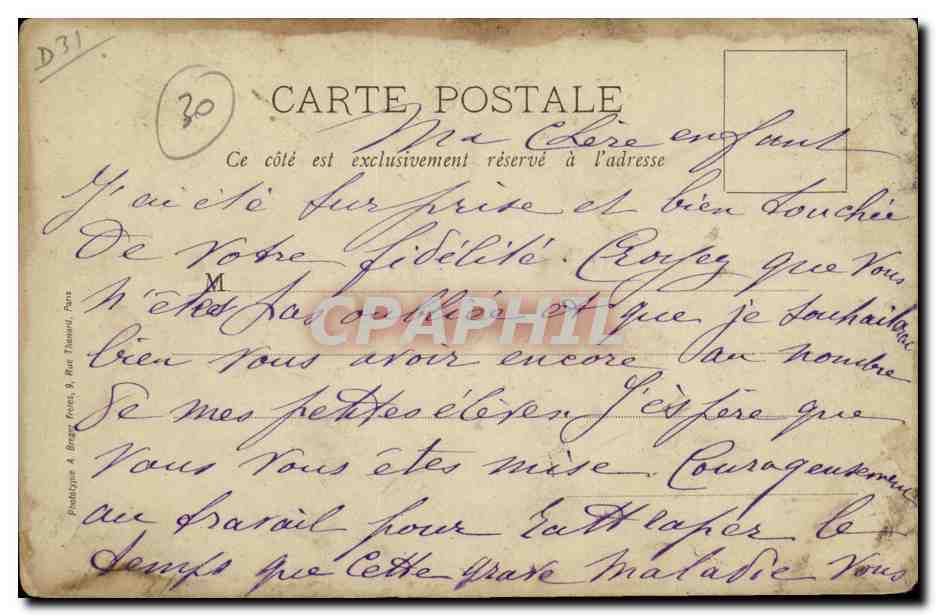 D31
30
CARTE POSTALE
Ma Chère enfant
Ce côté est exclusivement réservé à l'adresse
J'ai été surprise et bien touchée
De votre fidélité. Croyez que vous
M
n'êtes pas oubliée et que je souhaiterai
CPAPHIL
bien vous avoir encore au nombre
de mes petites élèves J'éspére que
Vous vous êtes mise Courageusement
au travail pour rattraper le
temps que cette grave maladie vous
Phototypie A. Breger Frères, 9, Rue Thenard, Paris